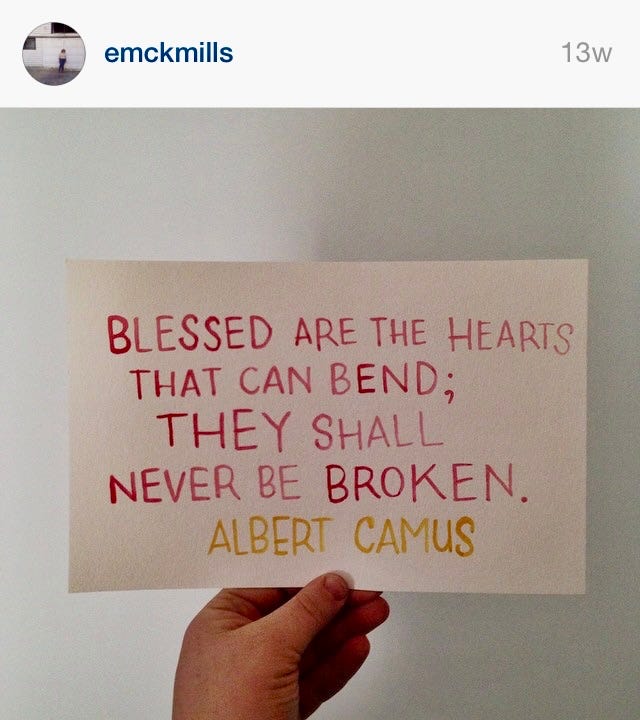 emckmills 13w
BLESSED ARE THE HEARTS
THAT CAN BEND;
THEY SHALL
NEVER BE BROKEN.
ALBERT CAMUS